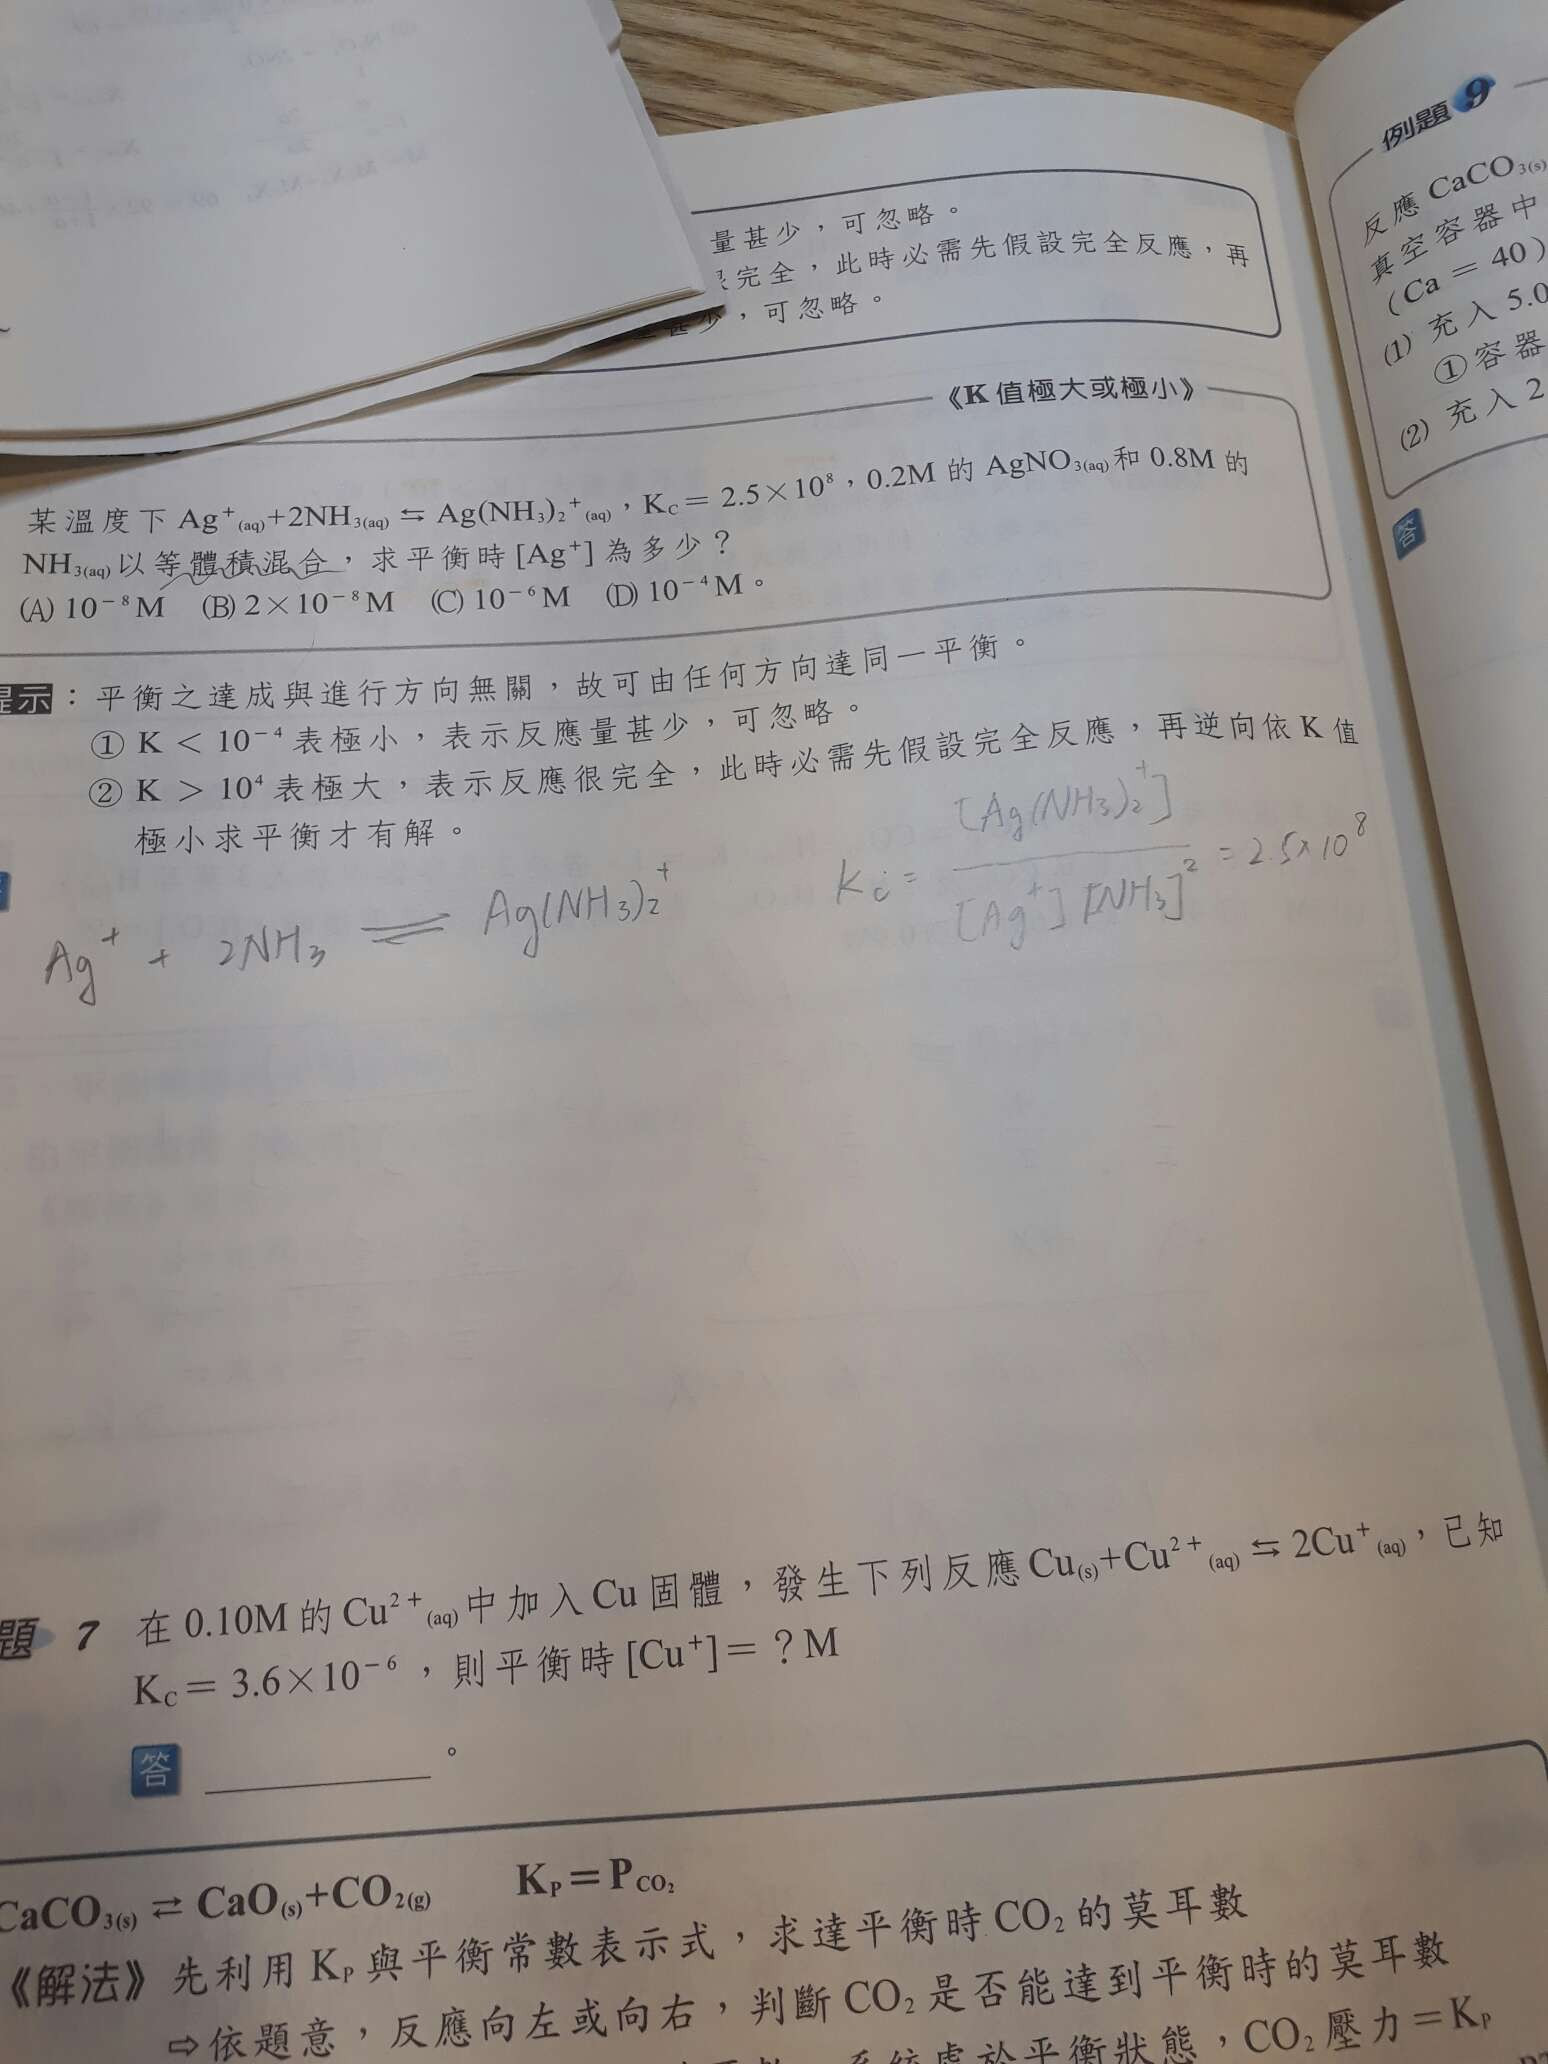 量甚少，可忽略。
完全，此時必需先假設完全反應，再
量甚少，可忽略。
《K 值極大或極小》
某溫度下 Ag⁺(aq)+2NH₃(aq) ⇆ Ag(NH₃)₂⁺(aq)，K_C＝2.5×10⁸，0.2M 的 AgNO₃(aq)和 0.8M 的
NH₃(aq)以等體積混合，求平衡時 [Ag⁺] 為多少？
(A) 10⁻⁸M (B) 2×10⁻⁸M (C) 10⁻⁶M (D) 10⁻⁴M。
提示：平衡之達成與進行方向無關，故可由任何方向達同一平衡。
① K ＜ 10⁻⁴ 表極小，表示反應量甚少，可忽略。
② K ＞ 10⁴ 表極大，表示反應很完全，此時必需先假設完全反應，再逆向依 K 值
極小求平衡才有解。
Ag⁺ + 2NH₃ ⇌ Ag(NH₃)₂⁺
Kc = [Ag(NH₃)₂⁺] / [Ag⁺][NH₃]² = 2.5×10⁸
題 7 在 0.10M 的 Cu²⁺(aq)中加入 Cu 固體，發生下列反應 Cu(s)+Cu²⁺(aq) ⇆ 2Cu⁺(aq)，已知
K_C＝3.6×10⁻⁶，則平衡時 [Cu⁺]＝？M
答 。
CaCO₃(s) ⇄ CaO(s)+CO₂(g) K_P＝P_CO₂
《解法》先利用 K_P 與平衡常數表示式，求達平衡時 CO₂ 的莫耳數
⇨依題意，反應向左或向右，判斷 CO₂ 是否能達到平衡時的莫耳數
系統處於平衡狀態，CO₂ 壓力＝K_P
例題 9
反應 CaCO₃(s)
真空容器中
(Ca ＝ 40)
(1) 充入 5.0
①容器
(2) 充入 2
答